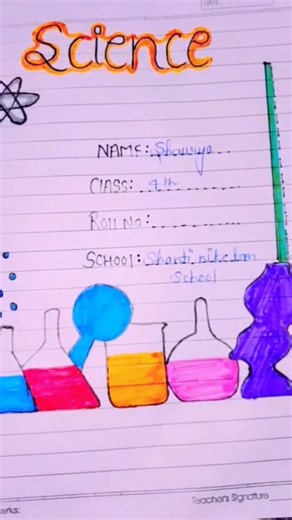 DATE
Science
NAME: Shaurya
CLASS: 4th
ROLL NO:
SCHOOL: Shanti niketan
School
arks:
Teacher's Signature